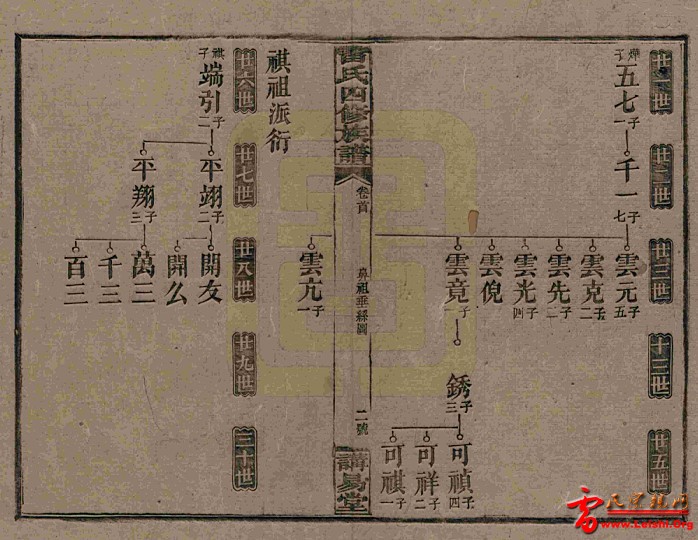 廿一世
廿二世
廿三世
廿五世
燁子
五七 子一
千一 子七
雲元 子五
雲克 子二
雲先 子二
雲光 子四
雲倪
雲竟 子一
銹 子三
可禎 子四
可祥 子二
可祺 子一
雷氏四修族譜
卷首
鼻祖垂綵圖
二號
講易堂
雲亢 子一
祺祖派衍
廿六世
廿七世
廿八世
廿九世
三十世
祺子
端引 子二
平翊 子二
平翔 子三
開友
開么
萬三
千三
百三
www.Leishi.Org